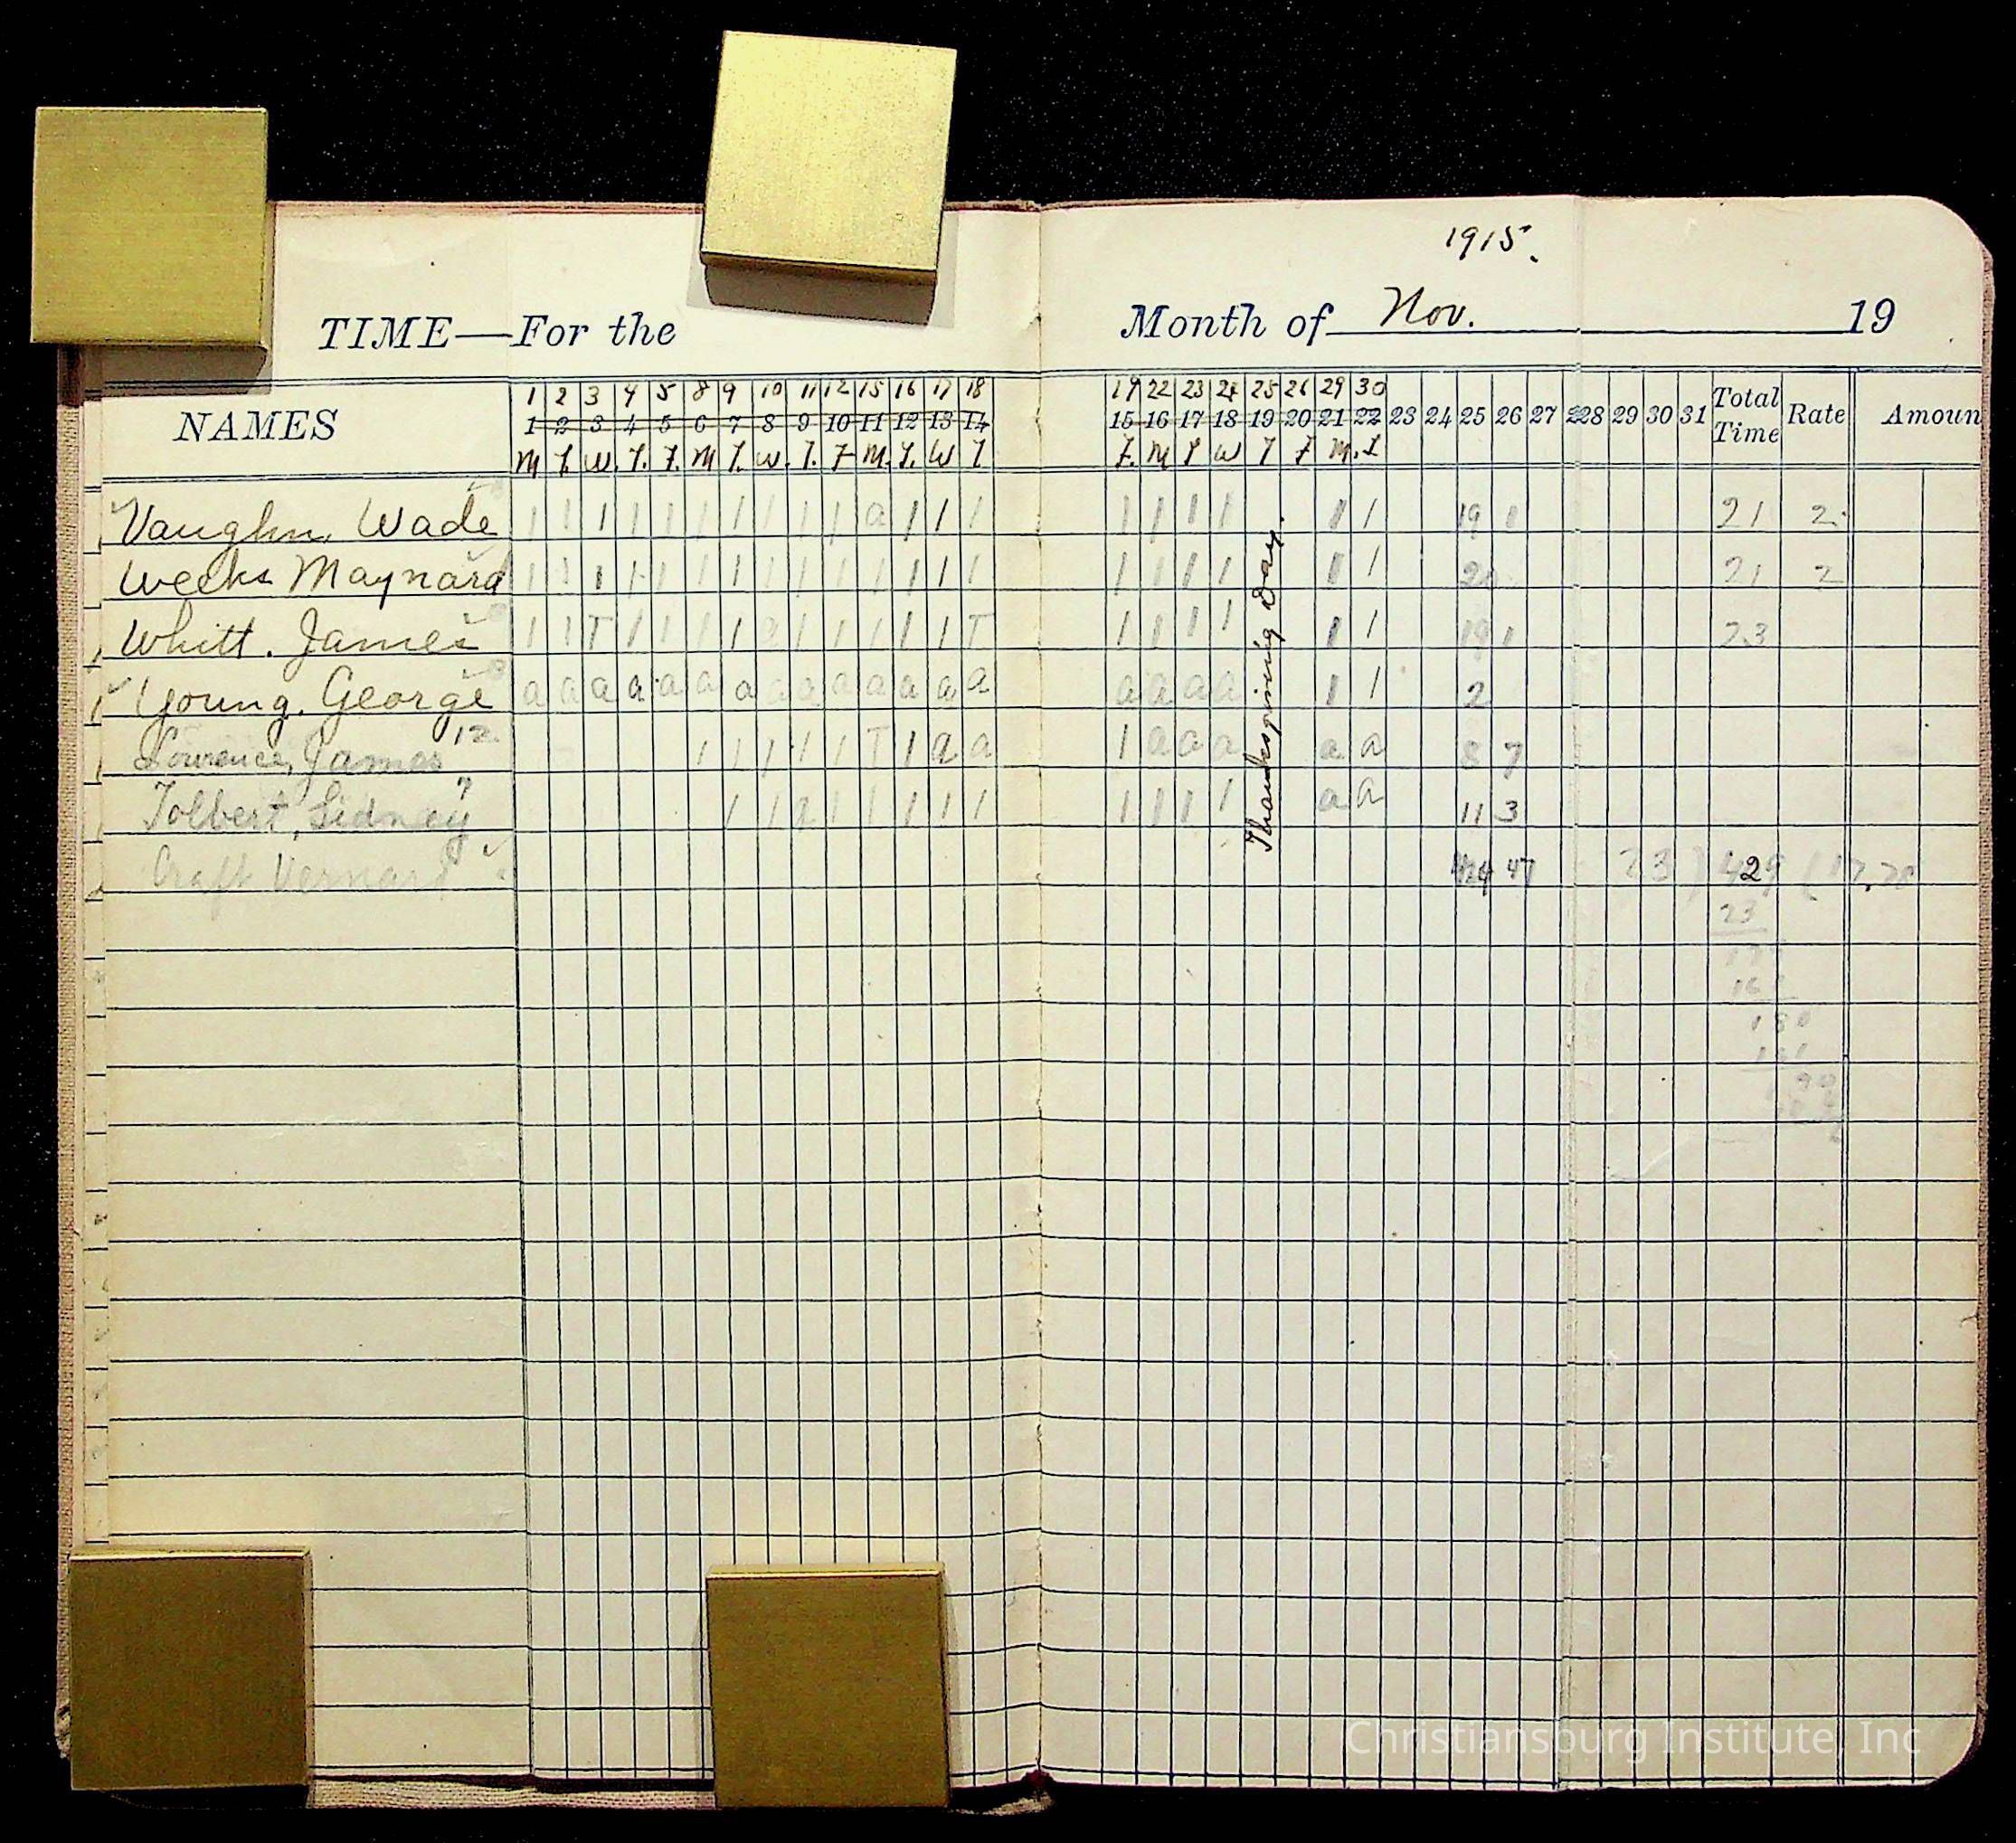 1915.
TIME—For the Month of Nov. 19
1 2 3 4 5 8 9 10 11 12 15 16 17 18 19 22 23 24 25 26 29 30
NAMES 1 2 3 4 5 6 7 8 9 10 11 12 13 14 15 16 17 18 19 20 21 22 23 24 25 26 27 28 29 30 31 Total Time Rate Amoun
M T. W. T. F. M T. W. T. F M. T. W T F. M T W T F M. T
Vaughn, Wade 1 1 1 1 1 1 1 1 1 1 a 1 1 1 1 1 1 1 1 1 19 1 21 2
Weeks Maynard 1 1 1 1 1 1 1 1 1 1 1 1 1 1 1 1 1 1 1 1 20 21 2
Whitt. James 1 1 T 1 1 1 1 1 1 1 1 1 T 1 1 1 1 1 1 19 1 23
Young, George a a a a a a a a a a a a a a a a a a 1 1 2
Lowrence, James 12 1 1 1 1 1 T 1 a a 1 a a a a a 8 7
Tolbert, Sidney 7 1 1 1 1 1 1 1 1 1 1 1 a a 11 3
Thanksgiving Day.
Craft Vernard 47 23 ) 429 ( 17.
23